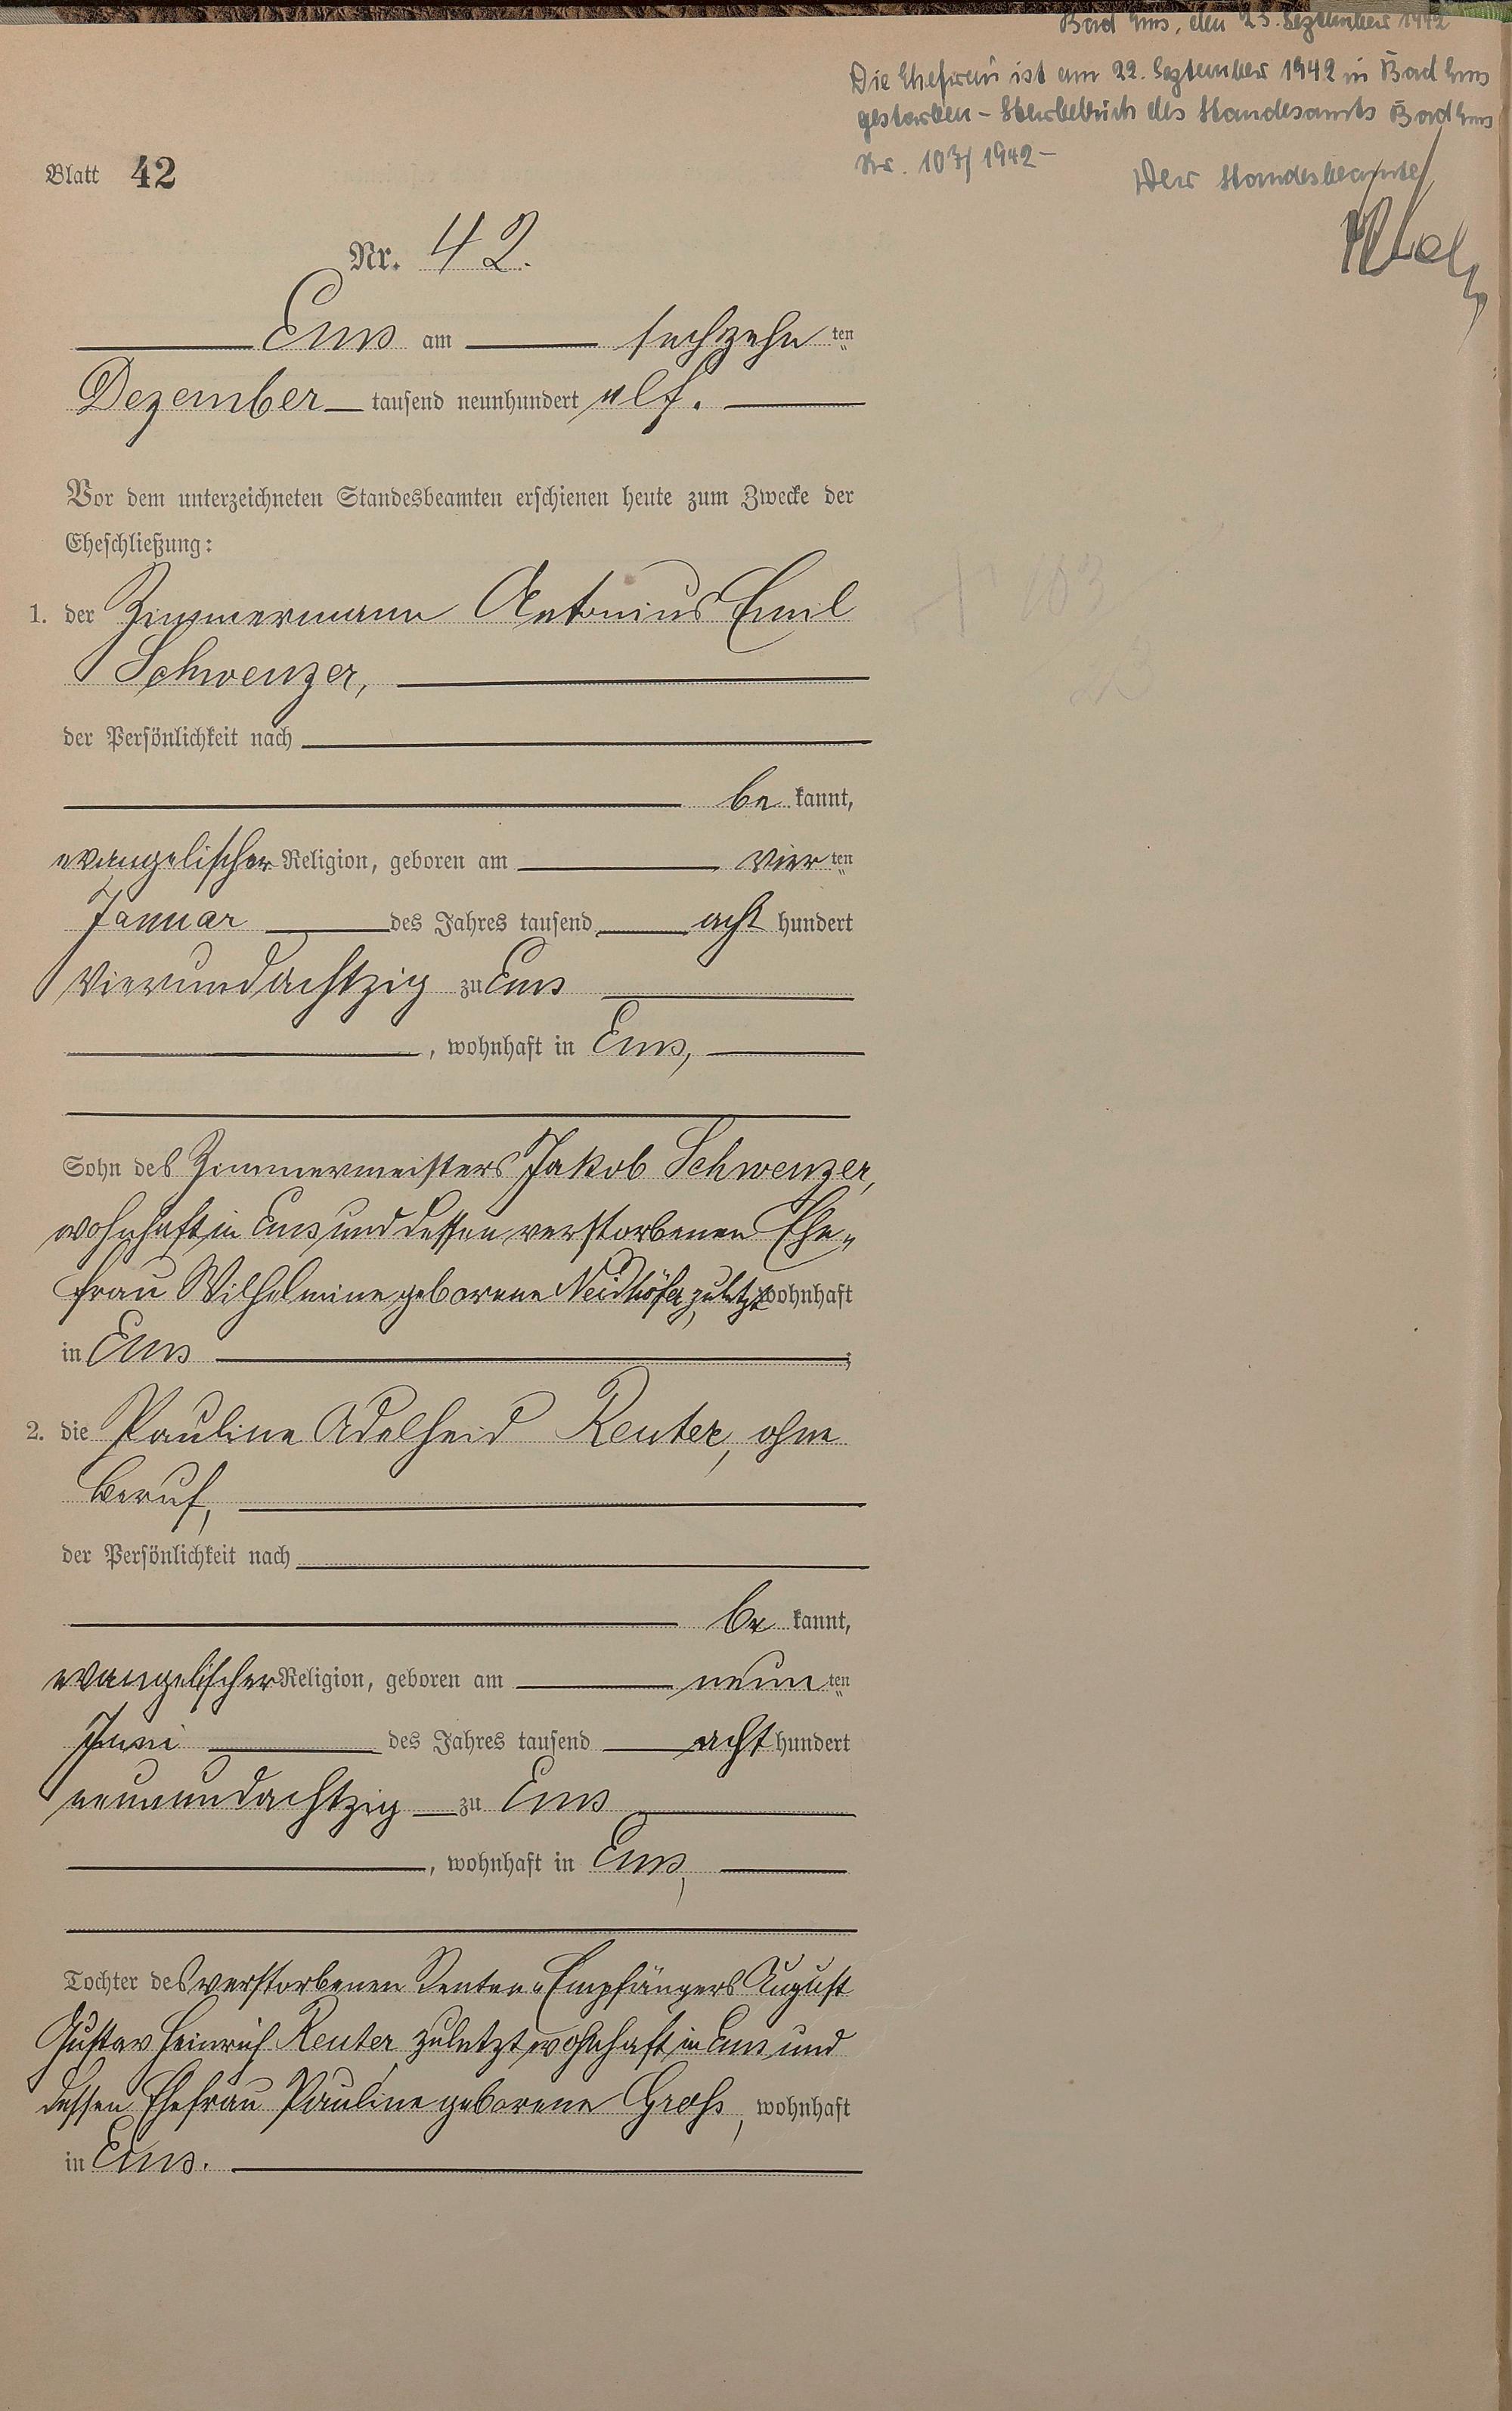 Bad Ems, den 23. September 1942
Die Ehefrau ist am 22. September 1942 in Bad Ems
gestorben - Sterbebuch des Standesamts Bad Ems
Nr. 103/1942 -
Der Standesbeamte
Blatt 42
Nr. 42.
Ems am sechzehn ten
Dezember tausend neunhundert elf.
Vor dem unterzeichneten Standesbeamten erschienen heute zum Zwecke der
Eheschließung:
1. der Zimmermann Antonius Emil
Schwenzer,
der Persönlichkeit nach
be kannt,
evangelischer Religion, geboren am vier ten
Januar des Jahres tausend acht hundert
vierundachtzig zu Ems
, wohnhaft in Ems,
Sohn des Zimmermeisters Jakob Schwenzer,
wohnhaft in Ems und dessen verstorbenen Ehe-
frau Wilhelmine geborene Neidhöfer, zuletzt wohnhaft
in Ems ;
2. die Pauline Adelheid Reuter, ohne
Beruf,
der Persönlichkeit nach
be kannt,
evangelischer Religion, geboren am neun ten
Juni des Jahres tausend acht hundert
neunundachtzig zu Ems
, wohnhaft in Ems,
Tochter des verstorbenen Renten-Empfängers August
Gustav Heinrich Reuter zuletzt wohnhaft in Ems und
dessen Ehefrau Pauline geborene Groß, wohnhaft
in Ems.
103
23